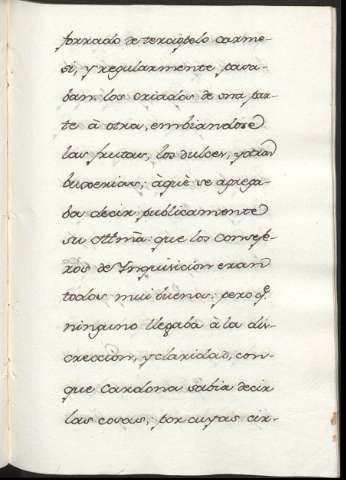 forrado de terciopelo carme-
si, y regularmente pasa-
ban los criados de una par-
te à otra, embiandose
las frutas, los dulces, y otras
buxerias; àquè se agrega-
ba decir publicamente
su Illma que los Conseje-
ros de Ynquisicion eran
todos mui buenos, pero qe.
ninguno llegaba à la dis-
crecion, y claridad, con-
que Cardona sabia decir
las cosas; por cuyas cir-